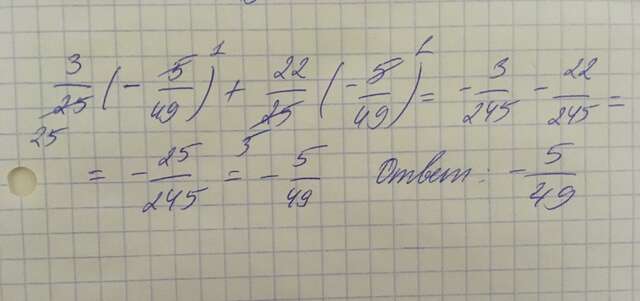 3/25 (- 5/49) + 22/25 (- 5/49) = - 3/245 - 22/245 =
= - 25/245 = - 5/49 Ответ: - 5/49